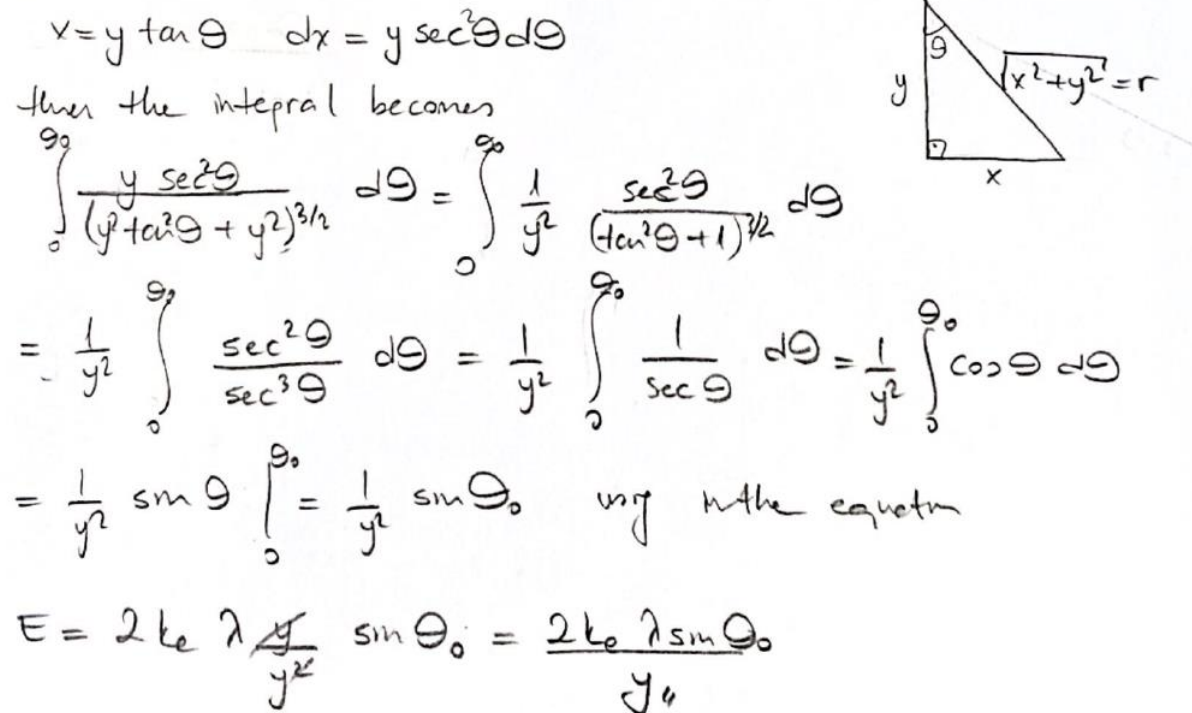 x = y tan θ   dx = y sec²θ dθ
y
θ
√(x²+y²) = r
x
then the integral becomes
∫₀^θ₀ (y sec²θ)/(y²tan²θ + y²)^(3/2) dθ = ∫₀^θ₀ 1/y² (sec²θ)/(tan²θ + 1)^(3/2) dθ
= 1/y² ∫₀^θ₀ (sec²θ)/(sec³θ) dθ = 1/y² ∫₀^θ₀ 1/(sec θ) dθ = 1/y² ∫₀^θ₀ cos θ dθ
= 1/y² sin θ |₀^θ₀ = 1/y² sin θ₀   using in the equation
E = 2 kₑ λ y/y² sin θ₀ = (2 kₑ λ sin θ₀)/y //